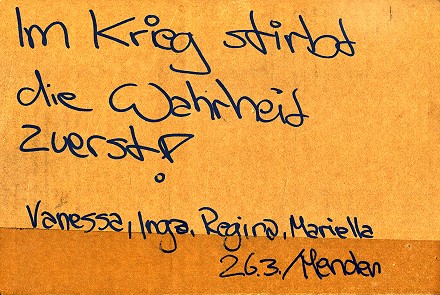 Im Krieg stirbt
die Wahrheit
zuerst!
Vanessa, Inga, Regina, Mariella
26.3./Menden